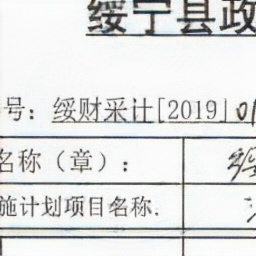 绥宁县政
号：绥财采计[2019]01
名称（章）：
施计划项目名称.